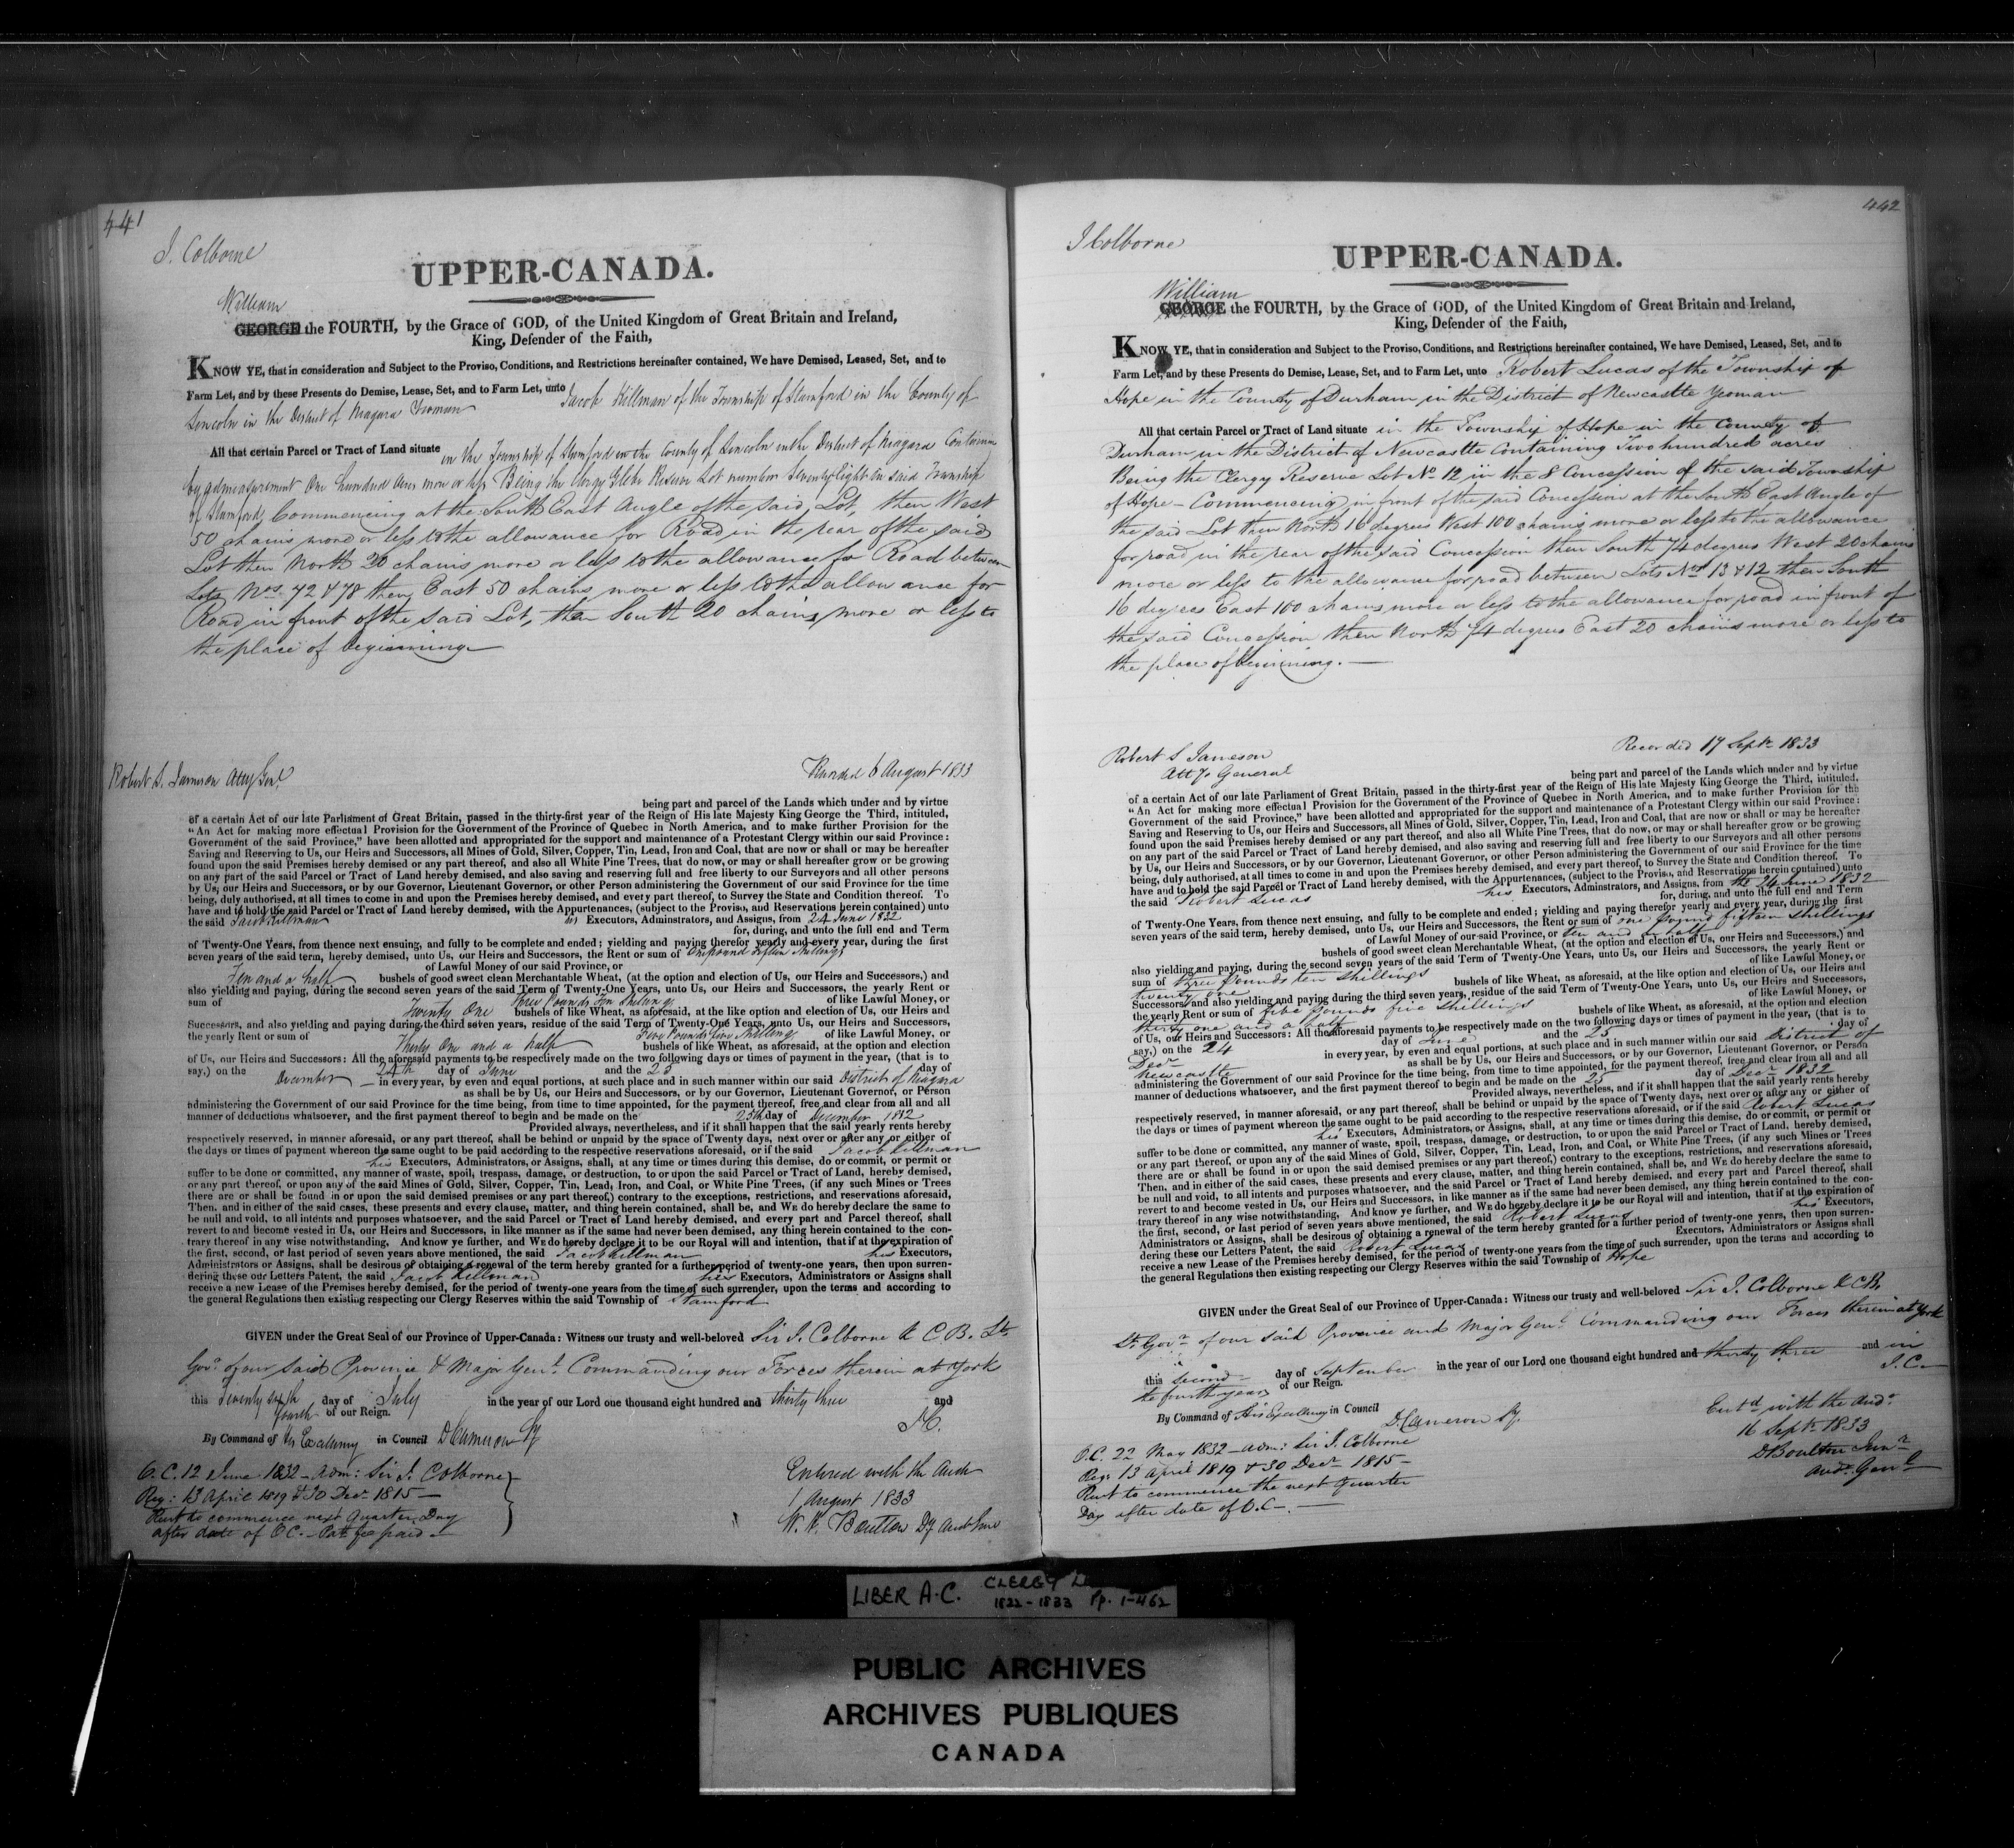 441
J. Colborne
UPPER-CANADA.
William
GEORGE the FOURTH, by the Grace of GOD, of the United Kingdom of Great Britain and Ireland,
King, Defender of the Faith,
KNOW YE, that in consideration and Subject to the Proviso, Conditions, and Restrictions hereinafter contained, We have Demised, Leased, Set, and to
Farm Let, and by these Presents do Demise, Lease, Set, and to Farm Let, unto Jacob Killman of the Township of Stamford in the County of
Lincoln in the District of Niagara Yeoman
All that certain Parcel or Tract of Land situate in the Township of Stamford in the County of Lincoln in the District of Niagara Containing
by admeasurement One hundred acres more or less Being the Clergy Glebe Reserve Lot number Seventy Eight in said Township
of Stamford, Commencing at the South East Angle of the said Lot, then West
50 chains more or less to the allowance for Road in the rear of the said
Lot then North 20 chains more or less to the allowance for Road between
Lots Nos. 72 & 78 then East 50 chains more or less to the allowance for
Road in front of the said Lot, then South 20 chains more or less to
the place of beginning
Robert S. Jameson Atty Genl.
Recorded 6 August 1833
being part and parcel of the Lands which under and by virtue
of a certain Act of our late Parliament of Great Britain, passed in the thirty-first year of the Reign of His late Majesty King George the Third, intituled,
"An Act for making more effectual Provision for the Government of the Province of Quebec in North America, and to make further Provision for the
Government of the said Province," have been allotted and appropriated for the support and maintenance of a Protestant Clergy within our said Province:
Saving and Reserving to Us, our Heirs and Successors, all Mines of Gold, Silver, Copper, Tin, Lead, Iron and Coal, that are now or shall or may be hereafter
found upon the said Premises hereby demised or any part thereof, and also all White Pine Trees, that do now, or may or shall hereafter grow or be growing
on any part of the said Parcel or Tract of Land hereby demised, and also saving and reserving full and free liberty to our Surveyors and all other persons
by Us, our Heirs and Successors, or by our Governor, Lieutenant Governor, or other Person administering the Government of our said Province for the time
being, duly authorised, at all times to come in and upon the Premises hereby demised, and every part thereof, to Survey the State and Condition thereof. To
have and to hold the said Parcel or Tract of Land hereby demised, with the Appurtenances, (subject to the Proviso, and Reservations herein contained) unto
the said Jacob Killman his Executors, Adminstrators, and Assigns, from 24 June 1832
for, during, and unto the full end and Term
of Twenty-One Years, from thence next ensuing, and fully to be complete and ended; yielding and paying therefor yearly and every year, during the first
seven years of the said term, hereby demised, unto Us, our Heirs and Successors, the Rent or sum of One pound fifteen Shillings
of Lawful Money of our said Province, or
Ten and a half bushels of good sweet clean Merchantable Wheat, (at the option and election of Us, our Heirs and Successors,) and
also yielding and paying, during the second seven years of the said Term of Twenty-One Years, unto Us, our Heirs and Successors, the yearly Rent or
sum of Three Pounds Ten Shillings of like Lawful Money, or
Twenty One bushels of like Wheat, as aforesaid, at the like option and election of Us, our Heirs and
Successors, and also yielding and paying during the third seven years, residue of the said Term of Twenty-One Years, unto Us, our Heirs and Successors,
the yearly Rent or sum of Five Pounds five Shillings of like Lawful Money, or
Thirty One and a half bushels of like Wheat, as aforesaid, at the option and election
of Us, our Heirs and Successors: All the aforesaid payments to be respectively made on the two following days or times of payment in the year, (that is to
say,) on the 24th day of June and the 25 day of
December in every year, by even and equal portions, at such place and in such manner within our said District of Niagara
as shall be by Us, our Heirs and Successors, or by our Governor, Lieutenant Governor, or Person
administering the Government of our said Province for the time being, from time to time appointed, for the payment thereof, free and clear from all and all
manner of deductions whatsoever, and the first payment thereof to begin and be made on the 25th day of December 1832
Provided always, nevertheless, and if it shall happen that the said yearly rents hereby
respectively reserved, in manner aforesaid, or any part thereof, shall be behind or unpaid by the space of Twenty days, next over or after any or either of
the days or times of payment whereon the same ought to be paid according to the respective reservations aforesaid, or if the said Jacob Killman
his Executors, Administrators, or Assigns, shall, at any time or times during this demise, do or commit, or permit or
suffer to be done or committed, any manner of waste, spoil, trespass, damage, or destruction, to or upon the said Parcel or Tract of Land, hereby demised,
or any part thereof, or upon any of the said Mines of Gold, Silver, Copper, Tin, Lead, Iron, and Coal, or White Pine Trees, (if any such Mines or Trees
there are or shall be found in or upon the said demised premises or any part thereof,) contrary to the exceptions, restrictions, and reservations aforesaid,
Then, and in either of the said cases, these presents and every clause, matter, and thing herein contained, shall be, and WE do hereby declare the same to
be null and void, to all intents and purposes whatsoever, and the said Parcel or Tract of Land hereby demised, and every part and Parcel thereof, shall
revert to and become vested in Us, our Heirs and Successors, in like manner as if the same had never been demised, any thing herein contained to the con-
trary thereof in any wise notwithstanding. And know ye further, and WE do hereby declare it to be our Royal will and intention, that if at the expiration of
the first, second, or last period of seven years above mentioned, the said Jacob Killman his Executors,
Administrators or Assigns, shall be desirous of obtaining a renewal of the term hereby granted for a further period of twenty-one years, then upon surren-
dering these our Letters Patent, the said Jacob Killman his Executors, Administrators or Assigns shall
receive a new Lease of the Premises hereby demised, for the period of twenty-one years from the time of such surrender, upon the terms and according to
the general Regulations then existing respecting our Clergy Reserves within the said Township of Stamford
GIVEN under the Great Seal of our Province of Upper-Canada: Witness our trusty and well-beloved Sir J. Colborne K C B. Lt.
Govr. of our said Province & Major Genl. Commanding our Forces therein at York
this Twenty sixth day of July in the year of our Lord one thousand eight hundred and thirty three and
fourth of our Reign.
J.C.
By Command of His Excellency in Council D Cameron Sy
O.C. 12 June 1832 - Adm: Sir J. Colborne
Reg: 13 April 1819 & 30 Decr. 1815 —
Rent to commence next Quarter Day
after date of O.C. - Patt fee paid
Entered with the Audr
1 August 1833
442
J Colborne
UPPER-CANADA.
William
GEORGE the FOURTH, by the Grace of GOD, of the United Kingdom of Great Britain and Ireland,
King, Defender of the Faith,
KNOW YE, that in consideration and Subject to the Proviso, Conditions, and Restrictions hereinafter contained, We have Demised, Leased, Set, and to
Farm Let, and by these Presents do Demise, Lease, Set, and to Farm Let, unto Robert Lucas of the Township of
Hope in the County of Durham in the District of Newcastle Yeoman
All that certain Parcel or Tract of Land situate in the Township of Hope in the County of
Durham in the District of Newcastle Containing Two hundred acres
Being the Clergy Reserve Lot No. 12 in the 8 Concession of the said Township
of Hope - Commencing in front of the said Concession at the South East Angle of
the said Lot then North 16 degrees West 100 chains more or less to the allowance
for road in the rear of the said Concession then South 74 degrees West 20 chains
more or less to the allowance for road between Lots Nos. 13 & 12 then South
16 degrees East 100 chains more or less to the allowance for road in front of
the said Concession then North 74 degrees East 20 chains more or less to
the place of beginning. —
Robert S Jameson
Atty General
Recorded 17 Septr. 1833
being part and parcel of the Lands which under and by virtue
of a certain Act of our late Parliament of Great Britain, passed in the thirty-first year of the Reign of His late Majesty King George the Third, intituled,
"An Act for making more effectual Provision for the Government of the Province of Quebec in North America, and to make further Provision for the
Government of the said Province," have been allotted and appropriated for the support and maintenance of a Protestant Clergy within our said Province:
Saving and Reserving to Us, our Heirs and Successors, all Mines of Gold, Silver, Copper, Tin, Lead, Iron and Coal, that are now or shall or may be hereafter
found upon the said Premises hereby demised or any part thereof, and also all White Pine Trees, that do now, or may or shall hereafter grow or be growing
on any part of the said Parcel or Tract of Land hereby demised, and also saving and reserving full and free liberty to our Surveyors and all other persons
by Us, our Heirs and Successors, or by our Governor, Lieutenant Governor, or other Person administering the Government of our said Province for the time
being, duly authorised, at all times to come in and upon the Premises hereby demised, and every part thereof, to Survey the State and Condition thereof. To
have and to hold the said Parcel or Tract of Land hereby demised, with the Appurtenances, (subject to the Proviso, and Reservations herein contained) unto
the said Robert Lucas his Executors, Adminstrators, and Assigns, from the 24 June 1832
for, during, and unto the full end and Term
of Twenty-One Years, from thence next ensuing, and fully to be complete and ended; yielding and paying therefor yearly and every year, during the first
seven years of the said term, hereby demised, unto Us, our Heirs and Successors, the Rent or sum of one pound fifteen shillings
of Lawful Money of our said Province, or ten and a half
bushels of good sweet clean Merchantable Wheat, (at the option and election of Us, our Heirs and Successors,) and
also yielding and paying, during the second seven years of the said Term of Twenty-One Years, unto Us, our Heirs and Successors, the yearly Rent or
sum of three pounds ten shillings of like Lawful Money, or
twenty one bushels of like Wheat, as aforesaid, at the like option and election of Us, our Heirs and
Successors, and also yielding and paying during the third seven years, residue of the said Term of Twenty-One Years, unto Us, our Heirs and Successors,
the yearly Rent or sum of five pounds five shillings of like Lawful Money, or
thirty one and a half bushels of like Wheat, as aforesaid, at the option and election
of Us, our Heirs and Successors: All the aforesaid payments to be respectively made on the two following days or times of payment in the year, (that is to
say,) on the 24 day of June and the 25 day of
Decr in every year, by even and equal portions, at such place and in such manner within our said District of
Newcastle as shall be by Us, our Heirs and Successors, or by our Governor, Lieutenant Governor, or Person
administering the Government of our said Province for the time being, from time to time appointed, for the payment thereof, free and clear from all and all
manner of deductions whatsoever, and the first payment thereof to begin and be made on the 25 day of Decr 1832
Provided always, nevertheless, and if it shall happen that the said yearly rents hereby
respectively reserved, in manner aforesaid, or any part thereof, shall be behind or unpaid by the space of Twenty days, next over or after any or either of
the days or times of payment whereon the same ought to be paid according to the respective reservations aforesaid, or if the said Robert Lucas
his Executors, Administrators, or Assigns, shall, at any time or times during this demise, do or commit, or permit or
suffer to be done or committed, any manner of waste, spoil, trespass, damage, or destruction, to or upon the said Parcel or Tract of Land, hereby demised,
or any part thereof, or upon any of the said Mines of Gold, Silver, Copper, Tin, Lead, Iron, and Coal, or White Pine Trees, (if any such Mines or Trees
there are or shall be found in or upon the said demised premises or any part thereof,) contrary to the exceptions, restrictions, and reservations aforesaid,
Then, and in either of the said cases, these presents and every clause, matter, and thing herein contained, shall be, and WE do hereby declare the same to
be null and void, to all intents and purposes whatsoever, and the said Parcel or Tract of Land hereby demised, and every part and Parcel thereof, shall
revert to and become vested in Us, our Heirs and Successors, in like manner as if the same had never been demised, any thing herein contained to the con-
trary thereof in any wise notwithstanding. And know ye further, and WE do hereby declare it to be our Royal will and intention, that if at the expiration of
the first, second, or last period of seven years above mentioned, the said Robert Lucas his Executors,
Administrators or Assigns, shall be desirous of obtaining a renewal of the term hereby granted for a further period of twenty-one years, then upon surren-
dering these our Letters Patent, the said Robert Lucas Executors, Administrators or Assigns shall
receive a new Lease of the Premises hereby demised, for the period of twenty-one years from the time of such surrender, upon the terms and according to
the general Regulations then existing respecting our Clergy Reserves within the said Township of Hope
GIVEN under the Great Seal of our Province of Upper-Canada: Witness our trusty and well-beloved Sir J. Colborne K C B,
Lt Govr. of our said Province and Major Genl. Commanding our Forces therein at York
this second day of September in the year of our Lord one thousand eight hundred and thirty three and in
the fourth year of our Reign.
J.C.
By Command of His Excellency in Council D. Cameron Sy.
O.C. 22 May 1832 - Adm: Sir J. Colborne
Reg: 13 April 1819 & 30 Decr 1815 -
Rent to commence the next Quarter
Day after date of O.C. —
Entd with the Audr
16 Septr 1833
D Boulton Junr
Audr. Genl
LIBER A.C. CLERGY
1822-1833 Pp. 1-462
PUBLIC ARCHIVES
ARCHIVES PUBLIQUES
CANADA